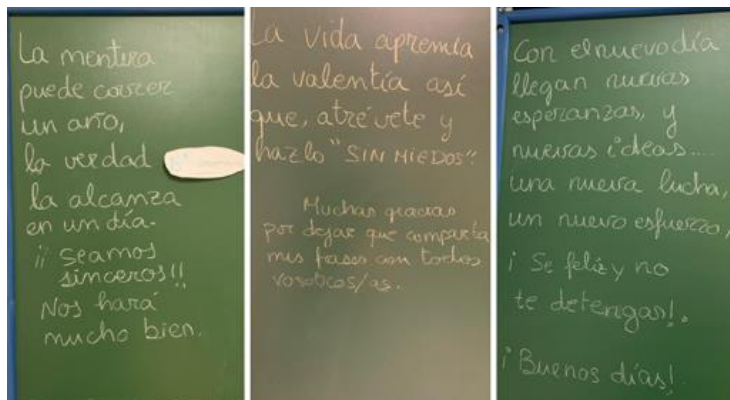 La mentira
puede correr
un año,
la verdad
la alcanza
en un día.
¡¡ Seamos
sinceros!!
Nos hará
mucho bien.
La vida apremia
la valentía así
que, atrévete y
hazlo "SIN MIEDOS".
Muchas gracias
por dejar que comparta
mis frases con todos
vosotros/as.
Con el nuevo día
llegan nuevas
esperanzas, y
nuevas ideas....
una nueva lucha,
un nuevo esfuerzo,
¡ Se feliz y no
te detengas!.
¡Buenos días!